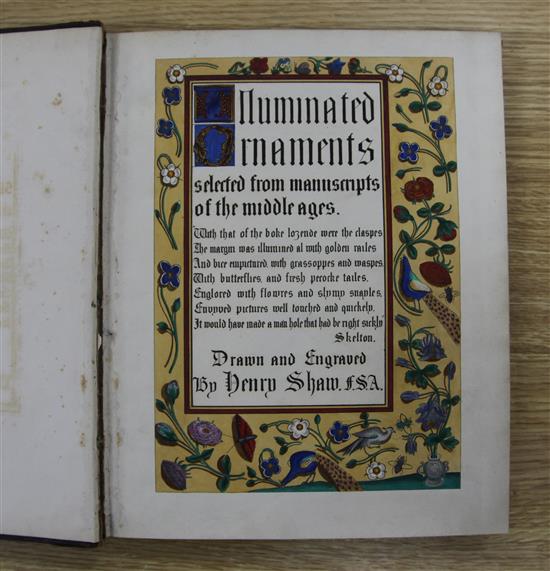 Illuminated
Ornaments
selected from manuscripts
of the middle ages.
"With that of the boke lozende were the claspes
The margin was illumined al with golden railes
And bice empictured, with grassoppes and waspes,
With butterflies, and fresh pecocke tailes,
Englored with flowres and slymy snayles,
Envyved pictures well touched and quickely,
It would have made a man hole that had be right sickly"
Skelton.
Drawn and Engraved
By Henry Shaw, F.S.A.